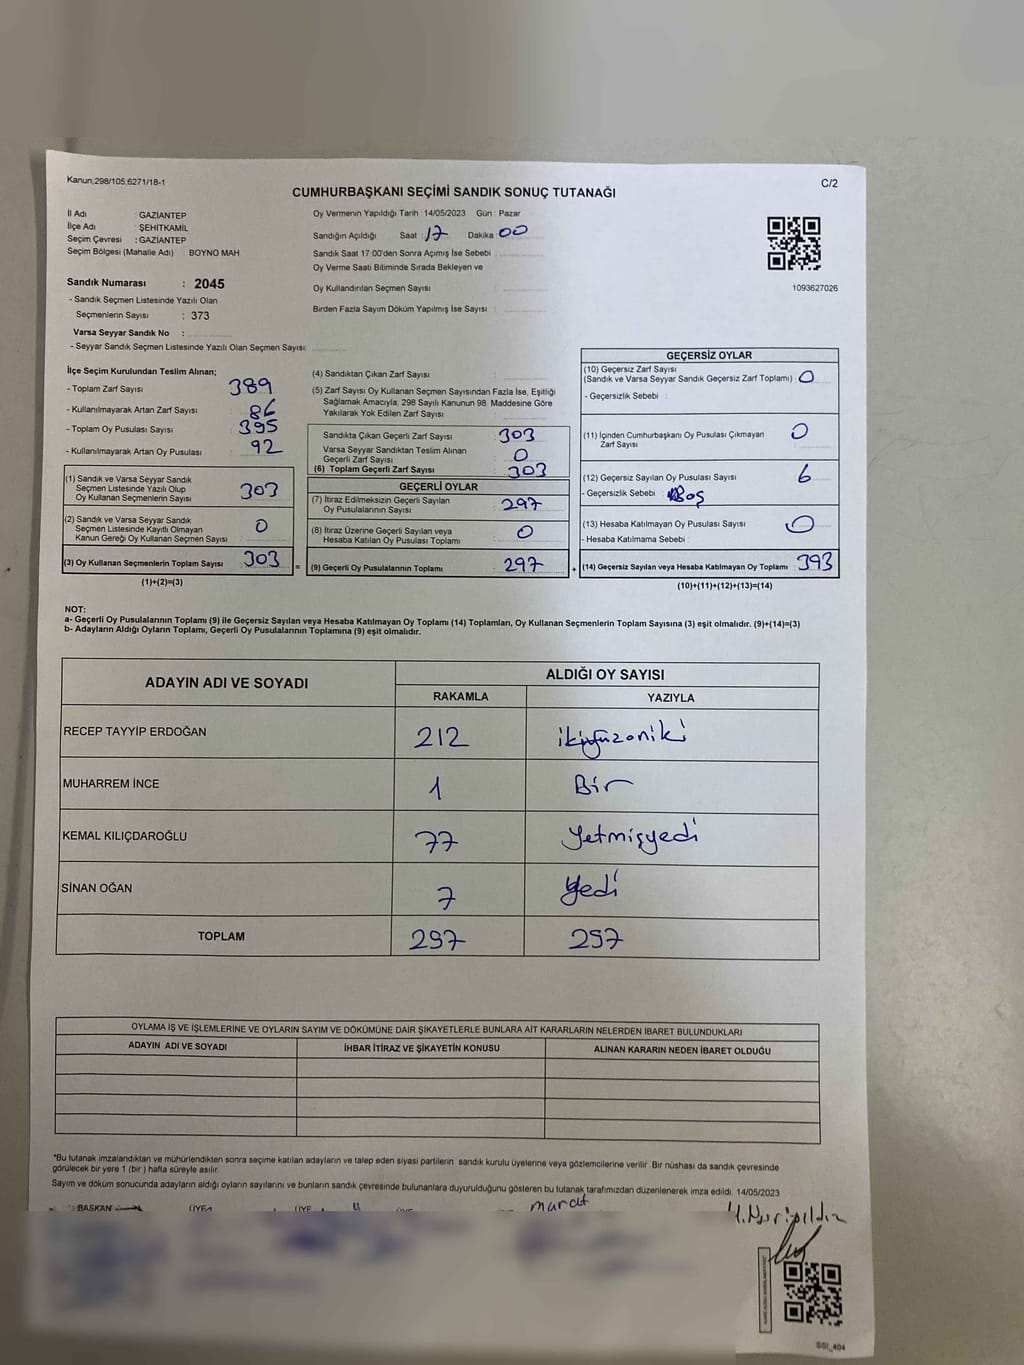 Kanun;298/105;6271/18-1
C/2
CUMHURBAŞKANI SEÇİMİ SANDIK SONUÇ TUTANAĞI
İl Adı : GAZİANTEP
İlçe Adı : ŞEHİTKAMİL
Seçim Çevresi : GAZİANTEP
Seçim Bölgesi (Mahalle Adı) : BOYNO MAH
Sandık Numarası : 2045
- Sandık Seçmen Listesinde Yazılı Olan
Seçmenlerin Sayısı : 373
Varsa Seyyar Sandık No :
- Seyyar Sandık Seçmen Listesinde Yazılı Olan Seçmen Sayısı:
Oy Vermenin Yapıldığı Tarih : 14/05/2023 Gün : Pazar
Sandığın Açıldığı Saat 17 Dakika 00
Sandık Saat 17.00'den Sonra Açımış İse Sebebi
Oy Verme Saati Bitiminde Sırada Bekleyen ve
Oy Kullandırılan Seçmen Sayısı
Birden Fazla Sayım Döküm Yapılmış İse Sayısı :
1093627026
İlçe Seçim Kurulundan Teslim Alınan;
- Toplam Zarf Sayısı : 389
- Kullanılmayarak Artan Zarf Sayısı : 86
- Toplam Oy Pusulası Sayısı : 395
- Kullanılmayarak Artan Oy Pusulası : 92
(1) Sandık ve Varsa Seyyar Sandık
Seçmen Listesinde Yazılı Olup
Oy Kullanan Seçmenlerin Sayısı 303
(2) Sandık ve Varsa Seyyar Sandık
Seçmen Listesinde Kayıtlı Olmayan
Kanun Gereği Oy Kullanan Seçmen Sayısı 0
(3) Oy Kullanan Seçmenlerin Toplam Sayısı 303 =
(1)+(2)=(3)
(4) Sandıktan Çıkan Zarf Sayısı
(5) Zarf Sayısı Oy Kullanan Seçmen Sayısından Fazla İse, Eşitliği
Sağlamak Amacıyla, 298 Sayılı Kanunun 98. Maddesine Göre
Yakılarak Yok Edilen Zarf Sayısı
Sandıkta Çıkan Geçerli Zarf Sayısı 303
Varsa Seyyar Sandıktan Teslim Alınan
Geçerli Zarf Sayısı 0
(6) Toplam Geçerli Zarf Sayısı 303
GEÇERLİ OYLAR
(7) İtiraz Edilmeksizin Geçerli Sayılan
Oy Pusulalarının Sayısı 297
(8) İtiraz Üzerine Geçerli Sayılan veya
Hesaba Katılan Oy Pusulası Toplamı 0
(9) Geçerli Oy Pusulalarının Toplamı 297 +
GEÇERSİZ OYLAR
(10) Geçersiz Zarf Sayısı
(Sandık ve Varsa Seyyar Sandık Geçersiz Zarf Toplamı) : 0
- Geçersizlik Sebebi :
(11) İçinden Cumhurbaşkanı Oy Pusulası Çıkmayan
Zarf Sayısı 0
(12) Geçersiz Sayılan Oy Pusulası Sayısı 6
- Geçersizlik Sebebi : Boş
(13) Hesaba Katılmayan Oy Pusulası Sayısı 0
- Hesaba Katılmama Sebebi :
(14) Geçersiz Sayılan veya Hesaba Katılmayan Oy Toplamı 393
(10)+(11)+(12)+(13)=(14)
NOT:
a- Geçerli Oy Pusulalarının Toplamı (9) ile Geçersiz Sayılan veya Hesaba Katılmayan Oy Toplamı (14) Toplamları, Oy Kullanan Seçmenlerin Toplam Sayısına (3) eşit olmalıdır. (9)+(14)=(3)
b- Adayların Aldığı Oyların Toplamı, Geçerli Oy Pusulalarının Toplamına (9) eşit olmalıdır.
ADAYIN ADI VE SOYADI ALDIĞI OY SAYISI
RAKAMLA YAZIYLA
RECEP TAYYİP ERDOĞAN 212 ikiyüzoniki
MUHARREM İNCE 1 Bir
KEMAL KILIÇDAROĞLU 77 Yetmişyedi
SİNAN OĞAN 7 Yedi
TOPLAM 297 297
OYLAMA İŞ VE İŞLEMLERİNE VE OYLARIN SAYIM VE DÖKÜMÜNE DAİR ŞİKAYETLERLE BUNLARA AİT KARARLARIN NELERDEN İBARET BULUNDUKLARI
ADAYIN ADI VE SOYADI İHBAR İTİRAZ VE ŞİKAYETİN KONUSU ALINAN KARARIN NEDEN İBARET OLDUĞU
*Bu tutanak imzalandıktan ve mühürlendikten sonra seçime katılan adayların ve talep eden siyasi partilerin sandık kurulu üyelerine veya gözlemcilerine verilir. Bir nüshası da sandık çevresinde
görülecek bir yere 1 (bir) hafta süreyle asılır.
Sayım ve döküm sonucunda adayların aldığı oyların sayılarını ve bunların sandık çevresinde bulunanlara duyurulduğunu gösteren bu tutanak tarafımızdan düzenlenerek imza edildi. 14/05/2023
BAŞKAN ÜYE ÜYE ÜYE murat
SSI_404